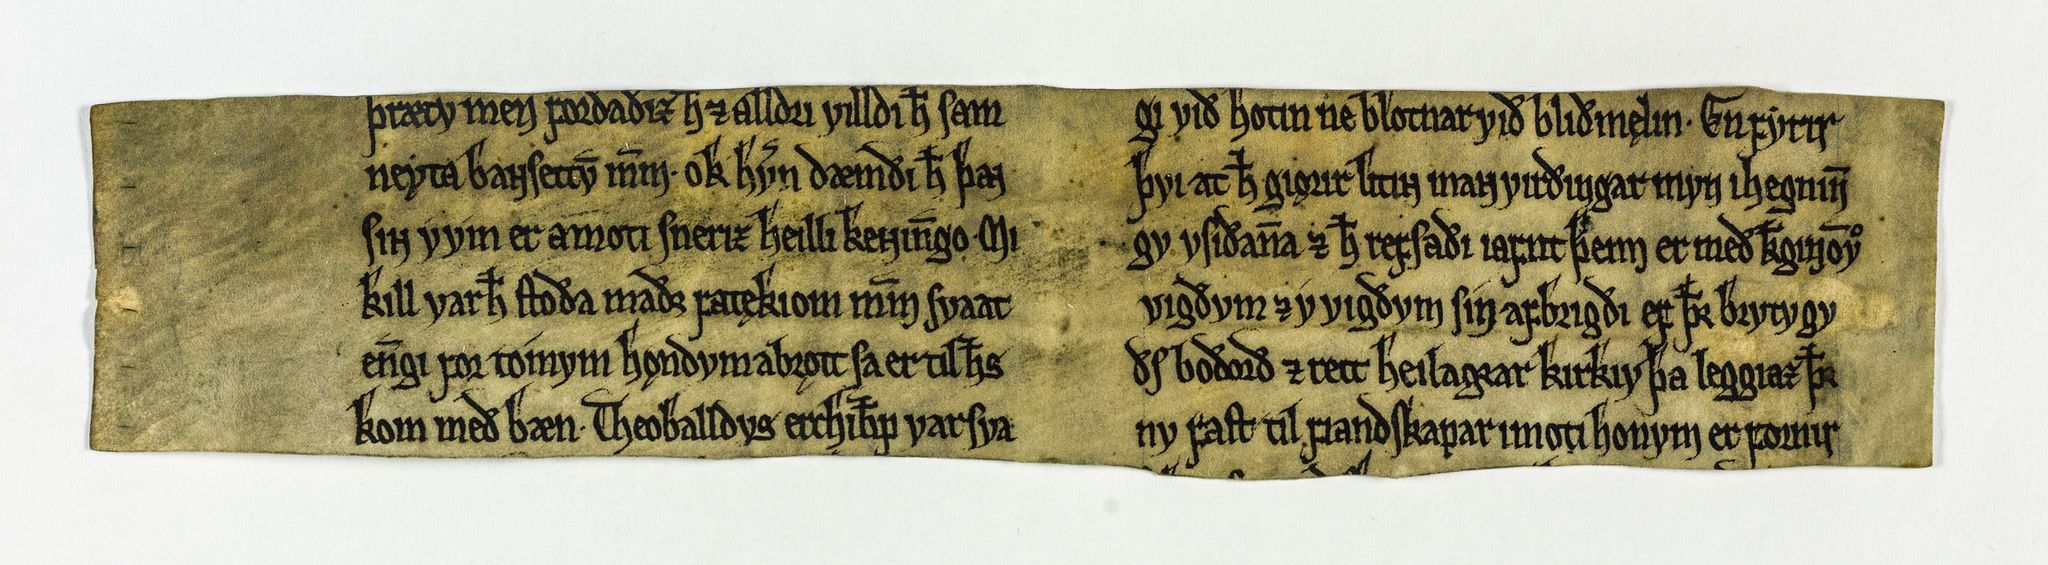 þræty men forðaðiz h̅ ⁊ alldri villdi h̅ sam
neyta banſetty̅ m̅m. ok hv́n dæmdi h̅ þan
ſin v vin er amoti ſneriz heilli kennin̅go. Mi
kill var h̅ ſtoða madꝛ fatękiom m̅m ſva at
en̅gi for tomym hǫndym a brǫtt ſa er til h̅s
kom með bæn. Theoballdvs erchib̅p var sva
gi við hotin ne blotnar við bliðmęlin. En fyrir
þvi at h̅ giǫrir litin man virðingar myn ihegnin̅
gv v ſiðan̅a ⁊ h̅ refſaði iafnt þeim er með k̅gin̅o̅v
vigðvm ⁊ v vigðvm ſin afbrigði ef þr̅ bryty gv
ðſ boðorð ⁊ rett heilagrar kirkiv þa leggiaz þr̅
nv faſt til fiandſkapar imoti honvm er fomir